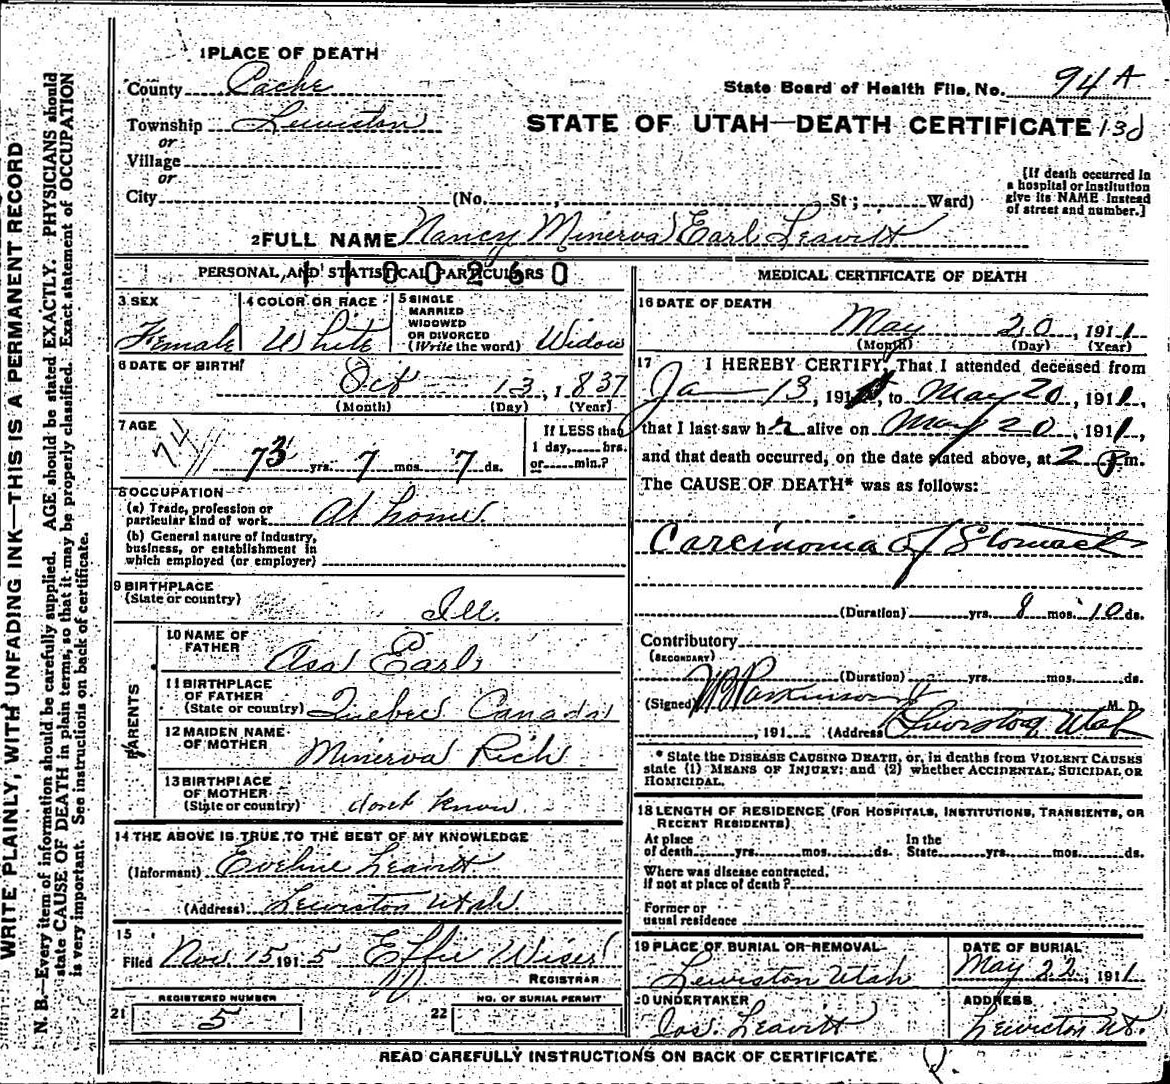 1 PLACE OF DEATH
County Cache
State Board of Health File No. 94 A
Township Lewiston
STATE OF UTAH—DEATH CERTIFICATE 130
or
Village
or
City (No. , St; , Ward)
[If death occurred in a hospital or institution give its NAME instead of street and number.]
2 FULL NAME Nancy Minerva Earl Leavitt
1100260
PERSONAL AND STATISTICAL PARTICULARS
3 SEX Female
4 COLOR OR RACE White
5 SINGLE MARRIED WIDOWED OR DIVORCED (Write the word) Widow
6 DATE OF BIRTH
Oct 13, 1837
(Month) (Day) (Year)
7 AGE
74
73 yrs. 7 mos. 7 ds.
If LESS than 1 day, hrs. or min.?
8 OCCUPATION
(a) Trade, profession or particular kind of work At home.
(b) General nature of industry, business, or establishment in which employed (or employer)
9 BIRTHPLACE
(State or country) Ill.
PARENTS
10 NAME OF FATHER Asa Earl
11 BIRTHPLACE OF FATHER (State or country) Quebec Canada
12 MAIDEN NAME OF MOTHER Minerva Rich
13 BIRTHPLACE OF MOTHER (State or country) dont know
14 THE ABOVE IS TRUE TO THE BEST OF MY KNOWLEDGE
(Informant) Eveline Leavitt
(Address) Lewiston Utah
15
Filed Nov. 15 1915 Effie Wiser
REGISTRAR
REGISTERED NUMBER
21 5
NO. OF BURIAL PERMIT
22
MEDICAL CERTIFICATE OF DEATH
16 DATE OF DEATH
May 20, 1911
(Month) (Day) (Year)
17 I HEREBY CERTIFY, That I attended deceased from
Jan 13, 191 , to May 20, 1911,
that I last saw her alive on May 20, 1911,
and that death occurred, on the date stated above, at 2 P m.
The CAUSE OF DEATH* was as follows:
Carcinoma of Stomach
(Duration) yrs. 8 mos. 10 ds.
Contributory
(SECONDARY)
(Duration) yrs. mos. ds.
(Signed) W B Parkinson Jr M. D.
, 191 (Address) Lewiston Utah
* State the DISEASE CAUSING DEATH, or, in deaths from VIOLENT CAUSES
state (1) MEANS OF INJURY; and (2) whether ACCIDENTAL, SUICIDAL OR
HOMICIDAL.
18 LENGTH OF RESIDENCE (FOR HOSPITALS, INSTITUTIONS, TRANSIENTS, OR
RECENT RESIDENTS)
At place of death yrs. mos. ds. In the State yrs. mos. ds.
Where was disease contracted,
if not at place of death?
Former or
usual residence
19 PLACE OF BURIAL OR REMOVAL
Lewiston Utah
DATE OF BURIAL
May 22, 1911
20 UNDERTAKER
Jos. Leavitt
ADDRESS
Lewiston Ut.
READ CAREFULLY INSTRUCTIONS ON BACK OF CERTIFICATE.
WRITE PLAINLY, WITH UNFADING INK—THIS IS A PERMANENT RECORD
N. B.—Every item of information should be carefully supplied. AGE should be stated EXACTLY. PHYSICIANS should
state CAUSE OF DEATH in plain terms, so that it may be properly classified. Exact statement of OCCUPATION
is very important. See instructions on back of certificate.